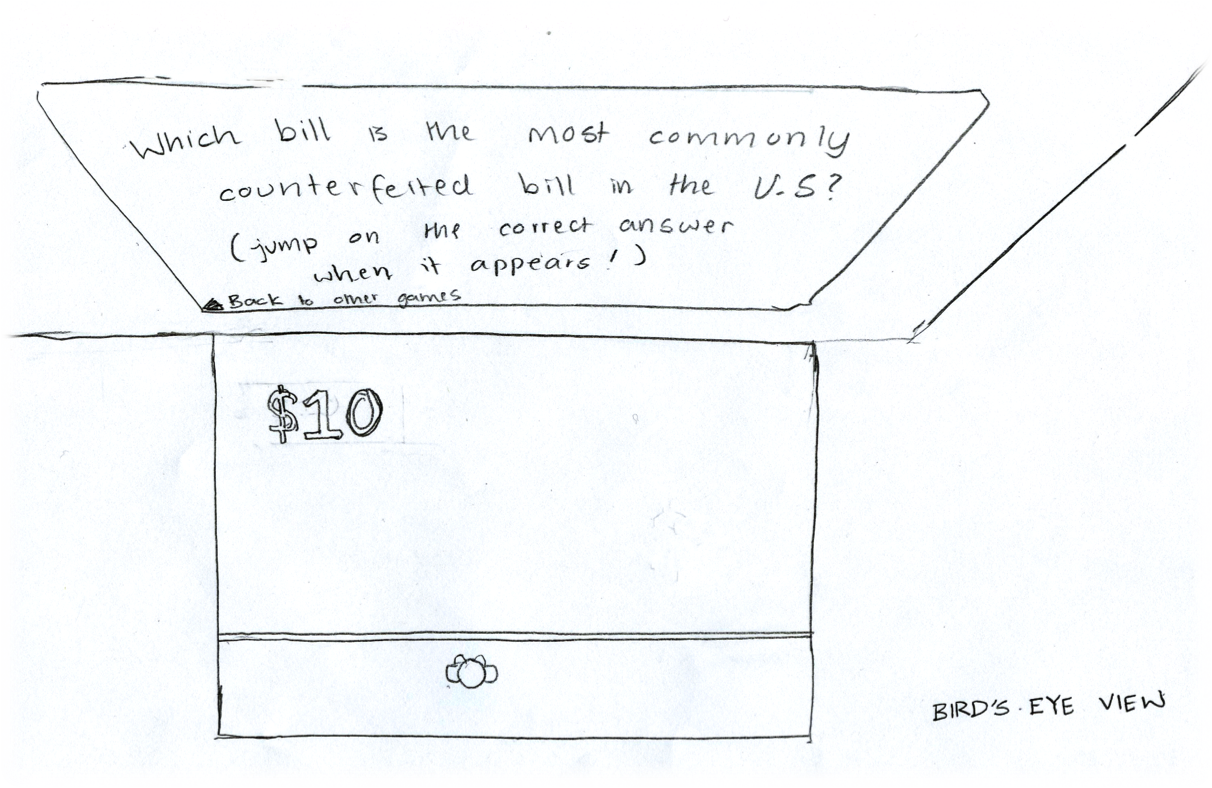 Which bill is the most commonly
counterfeited bill in the U.S?
(jump on the correct answer
when it appears!)
Back to other games
$10
BIRD'S-EYE VIEW